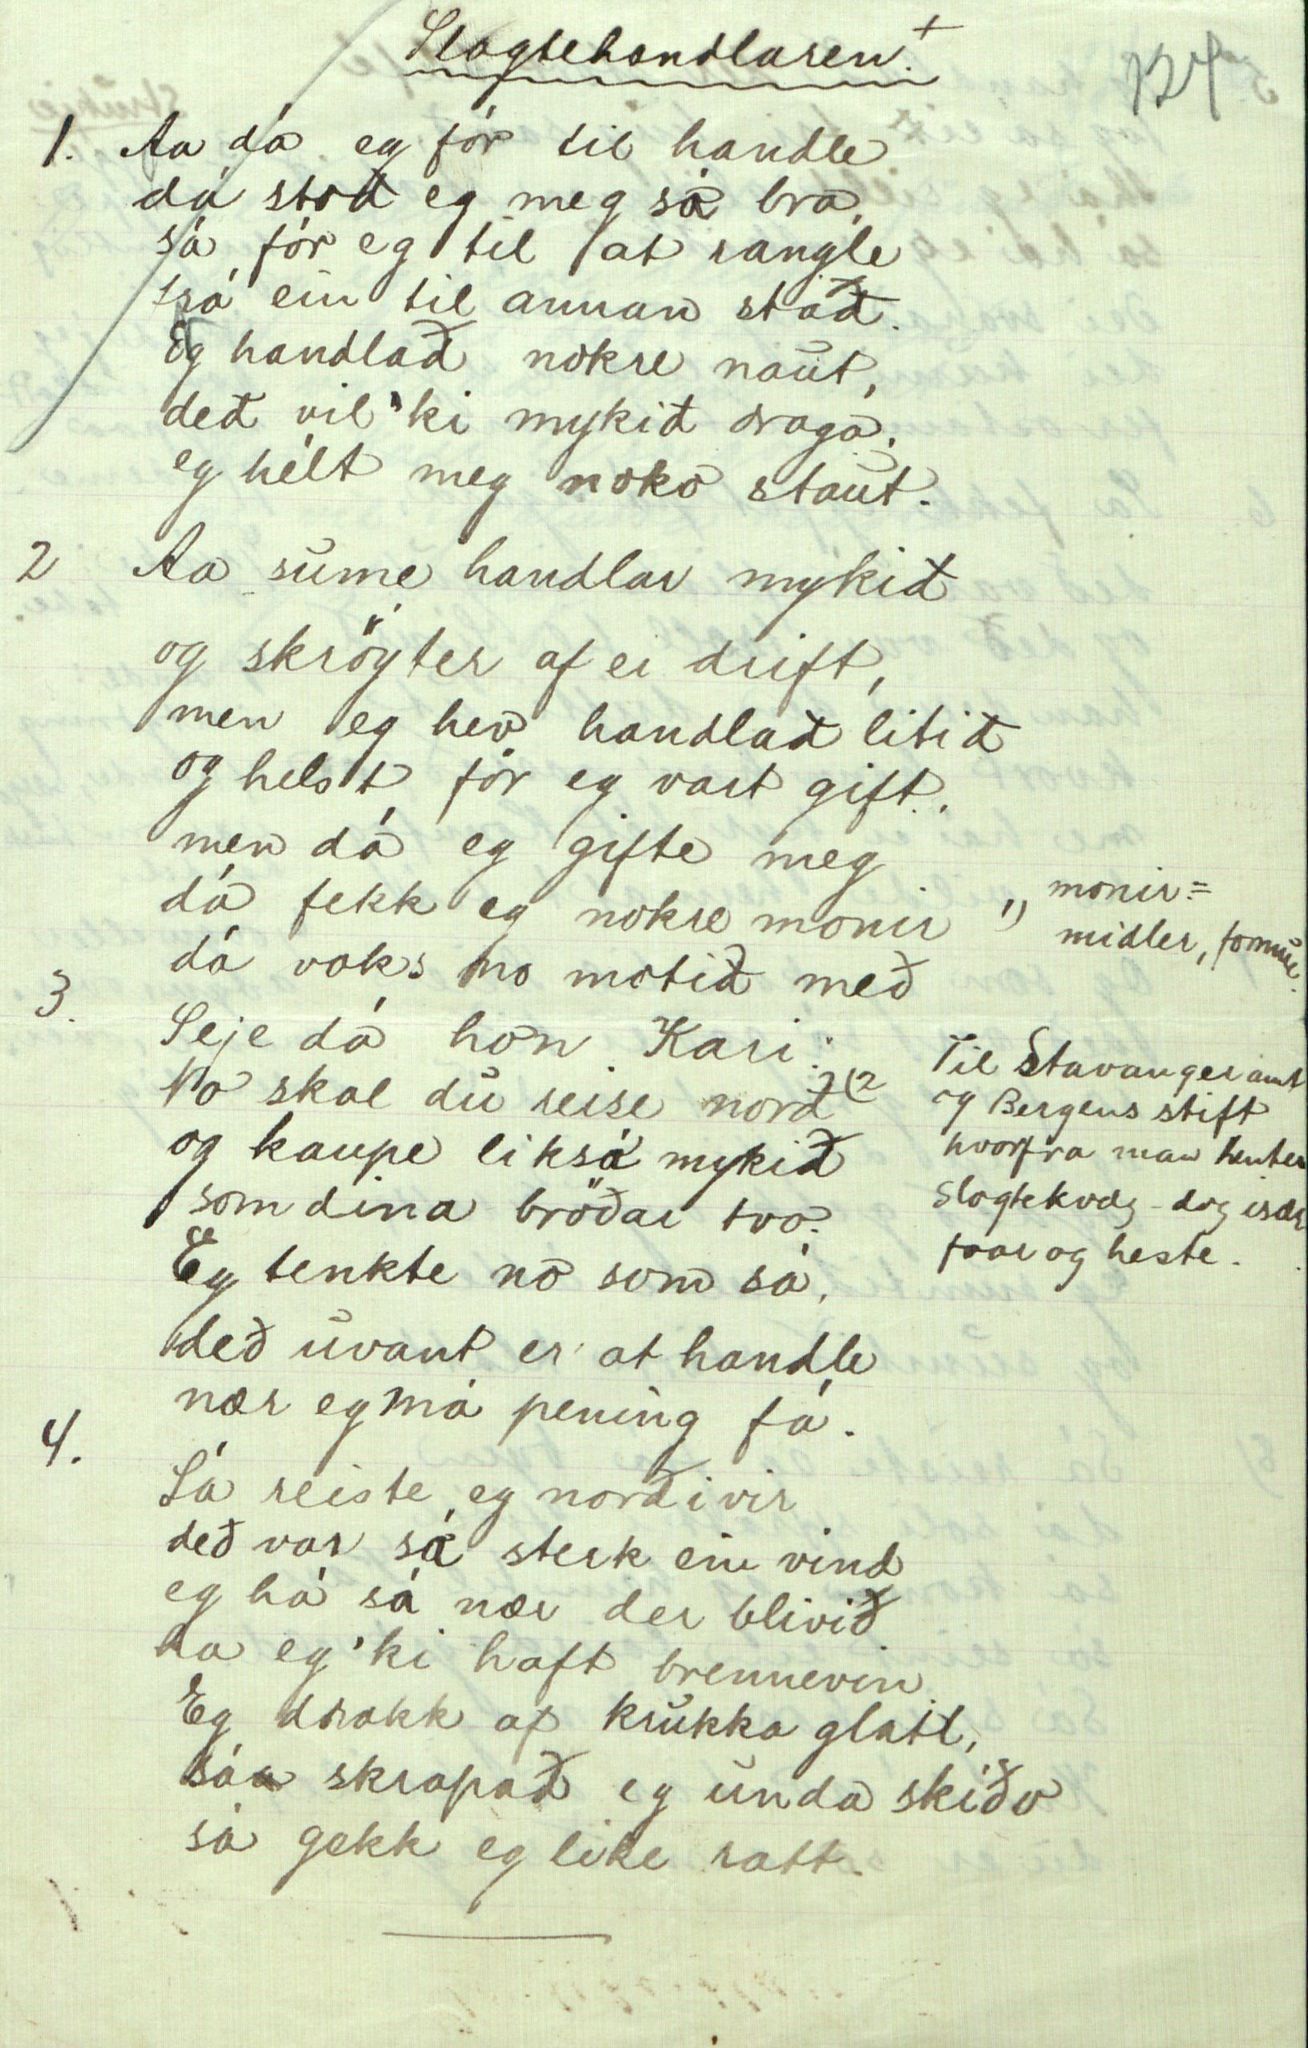 Slagtehandlaren. +
124
1. Aa dá eg fór til handle
dá stod eg meg så bra,
sá fór eg til at rangle
frá ein til annan stað.
Eg handlað nokre naut,
deð vil'ki mykið draga,
eg hélt meg noko staut.
2 Aa sume handlar mykið
og skröyter af ei drift,
men eg hev handlað litið
og helst fór eg vart gift,
men dá eg gifte meg
dá fekk eg nokre monir 1)
dá voks no motið með
monir =
midler, formue.
3. Seje dá hon Kari:
No skal du reise norð 2)
og kaupe liksá mykið
som dina bröðar tvo.
Eg tenkte no som sá,
deð uvant er at handle
nær eg má pening fá.
2 Til Stavanger amt
og Bergens stift
hvorfra man henter
slagtekvæg - dog især
faar og heste.
4. Sá reiste eg norðivir
deð var sá sterk ein vind
eg há sá nær der blivið
ha eg'ki haft brennevin
Eg drakk af krukka glatt,
sá skrapað eg unda skiðo
sá gekk eg like ratt.